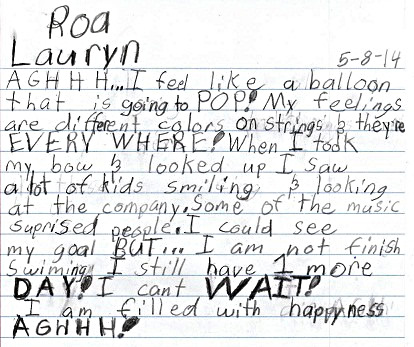 Roa
Lauryn 5-8-14
AGHHH...I feel like a balloon
that is going to POP! My feelings
are different colors on strings & they're
EVERY WHERE! When I took
my bow & looked up I saw
a lot of kids smiling & looking
at the company. Some of the music
suprised people. I could see
my goal BUT... I am not finish
swiming I still have 1 more
DAY! I cant WAIT!
I am filled with happyness
AGHHH!